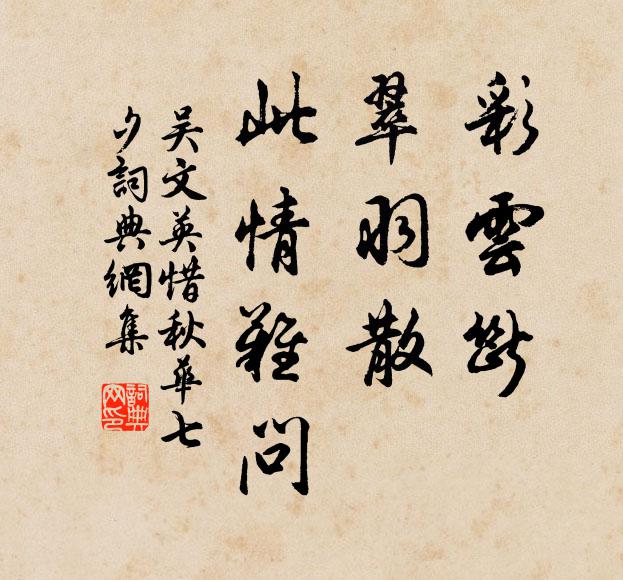 彩雲斷
翠羽散
此情難問
吳文英惜秋華七
夕詞典網集
詞典網印